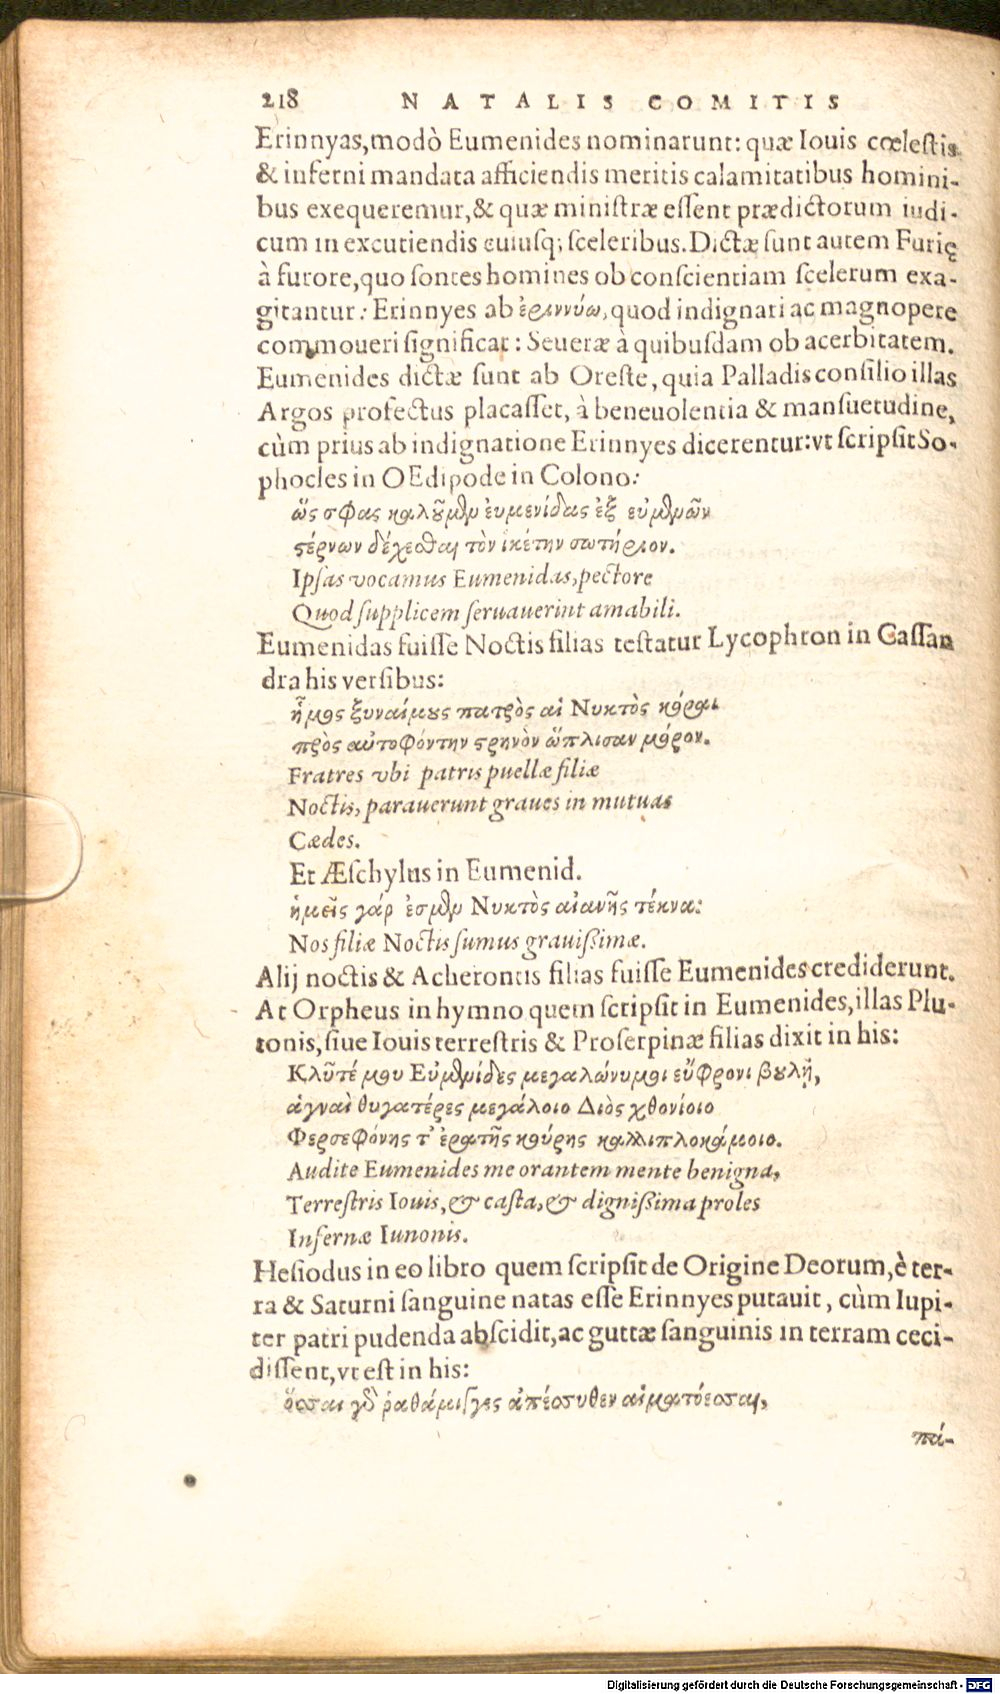 218 NATALIS COMITIS
Erinnyas, modò Eumenides nominarunt: quæ Iouis cœlestis
& inferni mandata afficiendis meritis calamitatibus homini-
bus exequeremur, & quæ ministræ essent prædictorum iudi-
cum in excutiendis cuiusq; sceleribus. Dictæ sunt autem Furię
à furore, quo sontes homines ob conscientiam scelerum exa-
gitantur: Erinnyes ab ἐριννύω, quod indignari ac magnopere
commoueri significat: Seueræ à quibusdam ob acerbitatem.
Eumenides dictæ sunt ab Oreste, quia Palladis consilio illas
Argos profectus placasset, à beneuolentia & mansuetudine,
cùm prius ab indignatione Erinnyes dicerentur: vt scripsit So-
phocles in OEdipode in Colono:
ὥς σφας καλοῦμεν ἐυμενίδας ἐξ εὐμενῶν
στέρνων δέχεσθαι τὸν ἱκέτην σωτήριον.
Ipsas vocamus Eumenidas, pectore
Quod supplicem seruauerint amabili.
Eumenidas fuisse Noctis filias testatur Lycophron in Cassan
dra his versibus:
ἦμος ξυναίμους πατρὸς αἱ Νυκτὸς κόραι
πρὸς αὐτοφόντην στρηνὸν ὥπλισαν μόρον.
Fratres vbi patris puellæ filiæ
Noctis, parauerunt graues in mutuas
Cædes.
Et Æschylus in Eumenid.
ἡμεῖς γάρ ἐσμεν Νυκτὸς αἰανῆς τέκνα:
Nos filiæ Noctis sumus grauissimæ.
Alij noctis & Acherontis filias fuisse Eumenides crediderunt.
At Orpheus in hymno quem scripsit in Eumenides, illas Plu-
tonis, siue Iouis terrestris & Proserpinæ filias dixit in his:
Κλῦτέ μου Εὐμενίδες μεγαλώνυμοι εὔφρονι βουλῇ,
ἁγναὶ θυγατέρες μεγάλοιο Διὸς χθονίοιο
Φερσεφόνης τ' ἐρατῆς κούρης καλλιπλοκάμοιο.
Audite Eumenides me orantem mente benigna,
Terrestris Iouis, & casta, & dignissima proles
Infernæ Iunonis.
Hesiodus in eo libro quem scripsit de Origine Deorum, è ter-
ra & Saturni sanguine natas esse Erinnyes putauit, cùm Iupi-
ter patri pudenda abscidit, ac guttæ sanguinis in terram ceci-
dissent, vt est in his:
ὅσσαι γὰρ ῥαθάμιγγες ἀπέσσυθεν αἱματόεσσαι,
πά-
Digitalisierung gefördert durch die Deutsche Forschungsgemeinschaft - DFG